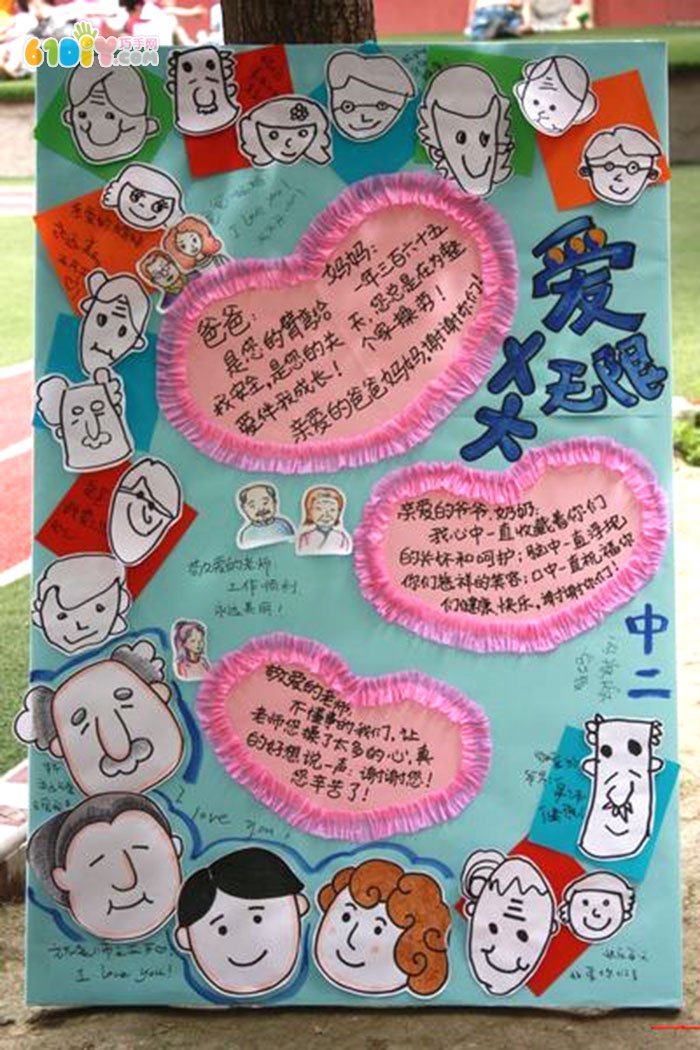 61DIY巧手网
.com
I love you!
爱
无限
爸爸:
是您的臂弯给
我安全,是您的关
爱伴我成长!
妈妈:
一年三百六十五
天,您总是在为整
个家操劳!
亲爱的爸爸妈妈,谢谢你们!
亲爱的爷爷、奶奶:
我心中一直收藏着你们
的关怀和呵护;脑中一直浮现
你们慈祥的笑容;口中一直祝福你
们健康、快乐,谢谢你们!
敬爱的老师
工作顺利
永远美丽!
中二
敬爱的老师
不懂事的我们,让
老师您操了太多的心,真
的好想说一声:谢谢您!
您辛苦了!
I love you!
I love you!